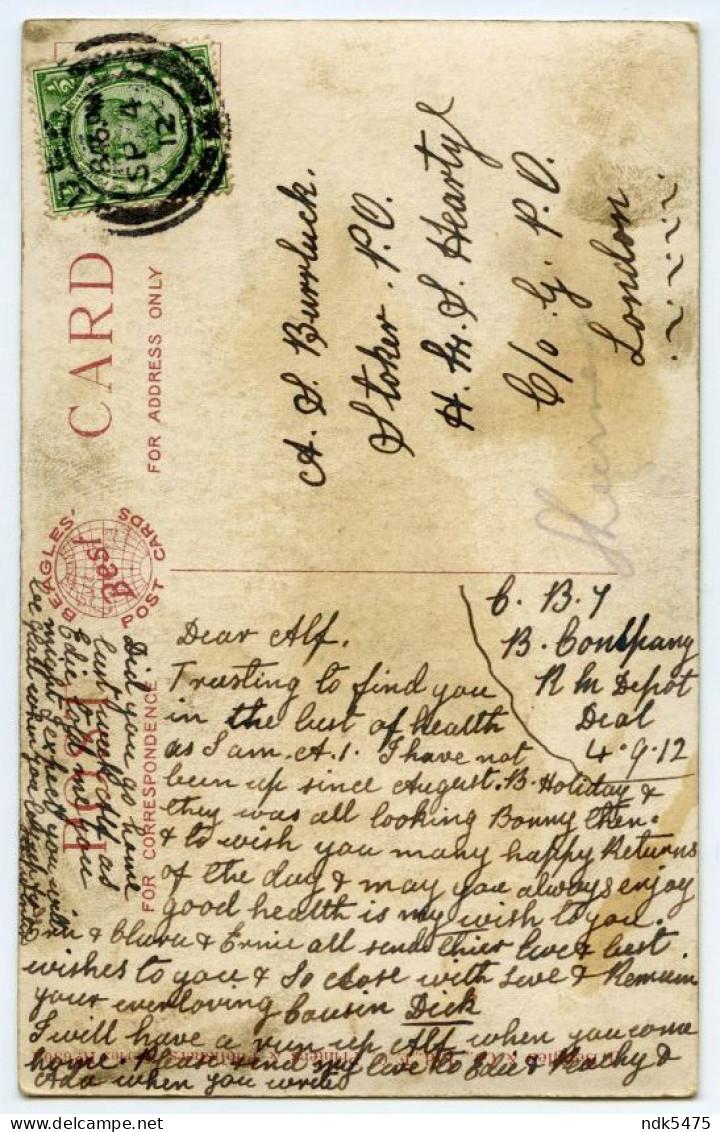 POST CARD
FOR ADDRESS ONLY
BEAGLES' Best POST CARDS
FOR CORRESPONDENCE
1/2
SP 4
12
A. S. Burrluck.
Stoker. P.O.
H. M. S. Hearty
C/o. G. P. O.
London
C. B. 7
B. Company
R M Depot
Deal
4.9.12
Dear Alf.
Trusting to find you
in the best of health
as I am. A.1. I have not
been up since August. B. Holiday &
they was all looking Bonny then.
& to wish you many happy Returns
of the day & may you always enjoy
good health is my wish to you.
& Clara & Ernie all send thier love & best
wishes to you & So close with Love & Remain
your everloving Cousin Dick
I will have a run up Alf when you come
home. Please send my love to Edie & &
Ada when you write
Did you go home
last week Alf as
Edie told me you
might I expect you will
be when you
ndk5475